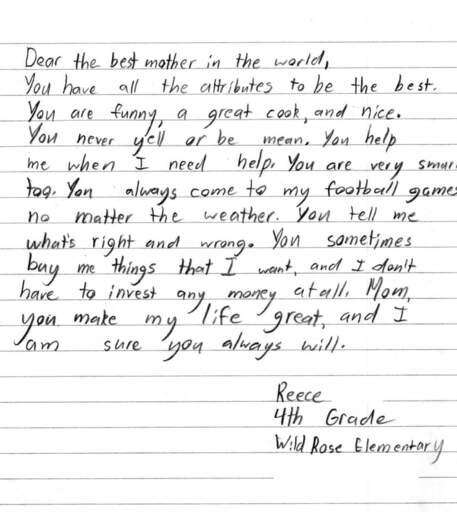 Dear the best mother in the world,
You have all the attributes to be the best.
You are funny, a great cook, and nice.
You never yell or be mean. You help
me when I need help. You are very smar
too. You always come to my football games
no matter the weather. You tell me
what's right and wrong. You sometimes
buy me things that I want, and I don't
have to invest any money at all. Mom,
you make my life great, and I
am sure you always will.
Reece
4th Grade
Wild Rose Elementary